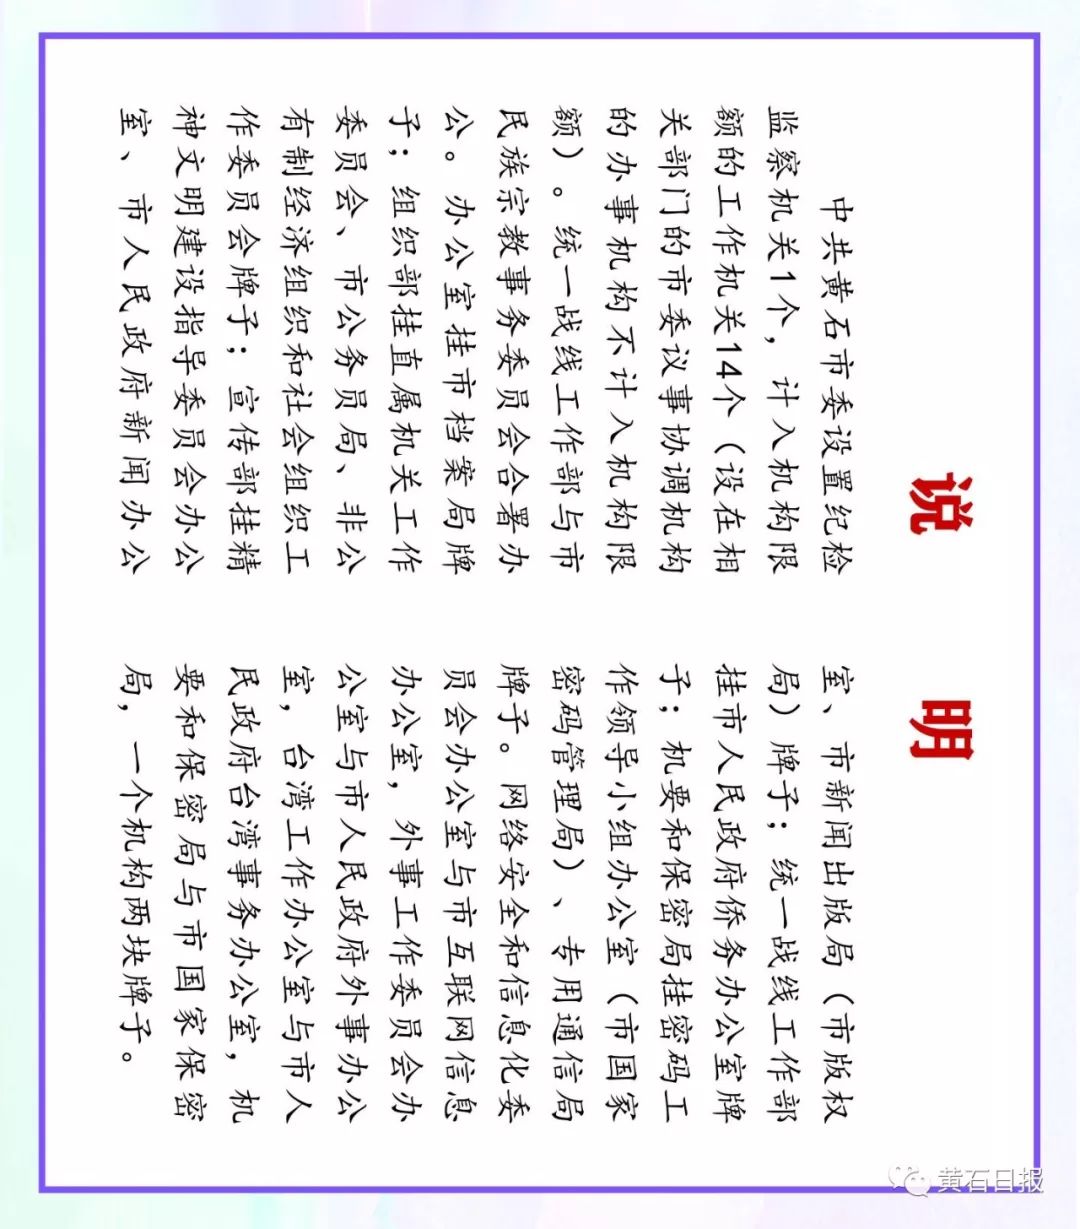 说 明
中共黄石市委设置纪检
监察机关1个，计入机构限
额的工作机关14个（设在相
关部门的市委议事协调机构
的办事机构不计入机构限
额）。统一战线工作部与市
民族宗教事务委员会合署办
公。办公室挂市档案局牌
子；组织部挂直属机关工作
委员会、市公务员局、非公
有制经济组织和社会组织工
作委员会牌子；宣传部挂精
神文明建设指导委员会办公
室、市人民政府新闻办公
室、市新闻出版局（市版权
局）牌子；统一战线工作部
挂市人民政府侨务办公室牌
子；机要和保密局挂密码工
作领导小组办公室（市国家
密码管理局）、专用通信局
牌子。网络安全和信息化委
员会办公室与市互联网信息
办公室，外事工作委员会办
公室与市人民政府外事办公
室，台湾工作办公室与市人
民政府台湾事务办公室，机
要和保密局与市国家保密
局，一个机构两块牌子。
黄石日报